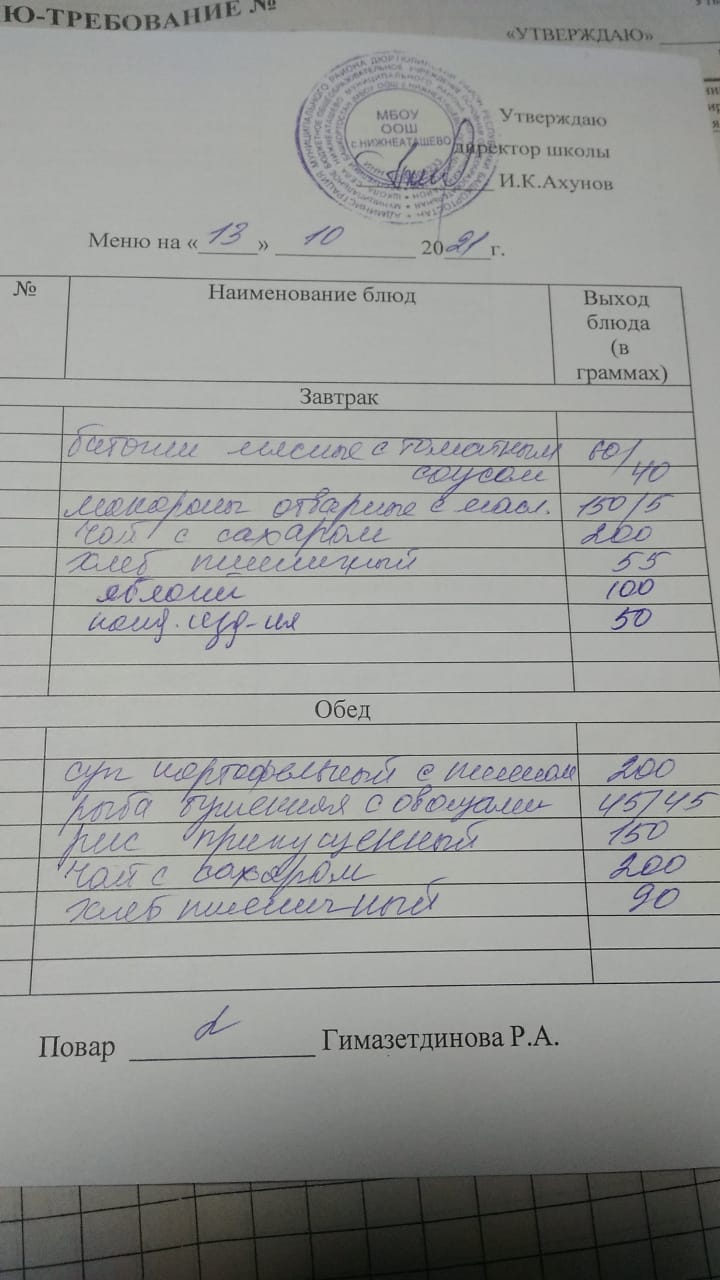 Ю-ТРЕБОВАНИЕ №
«УТВЕРЖДАЮ»
МБОУ
ООШ
с.НИЖНЕАТАШЕВО
Утверждаю
директор школы
И.К.Ахунов
Меню на «13» 10 2021г.
№ Наименование блюд Выход
блюда
(в
граммах)
Завтрак
батоны мясные с томатным 60/
соусом 40
макароны отварные с масл. 150/5
чай с сахаром 200
хлеб пшеничный 55
яблоки 100
конд. изд-ия 50
Обед
суп картофельный с пшеном 200
рыба тушенная с овощами 45/45
рис припущенный 150
чай с сахаром 200
хлеб пшеничный 90
Повар Гимазетдинова Р.А.